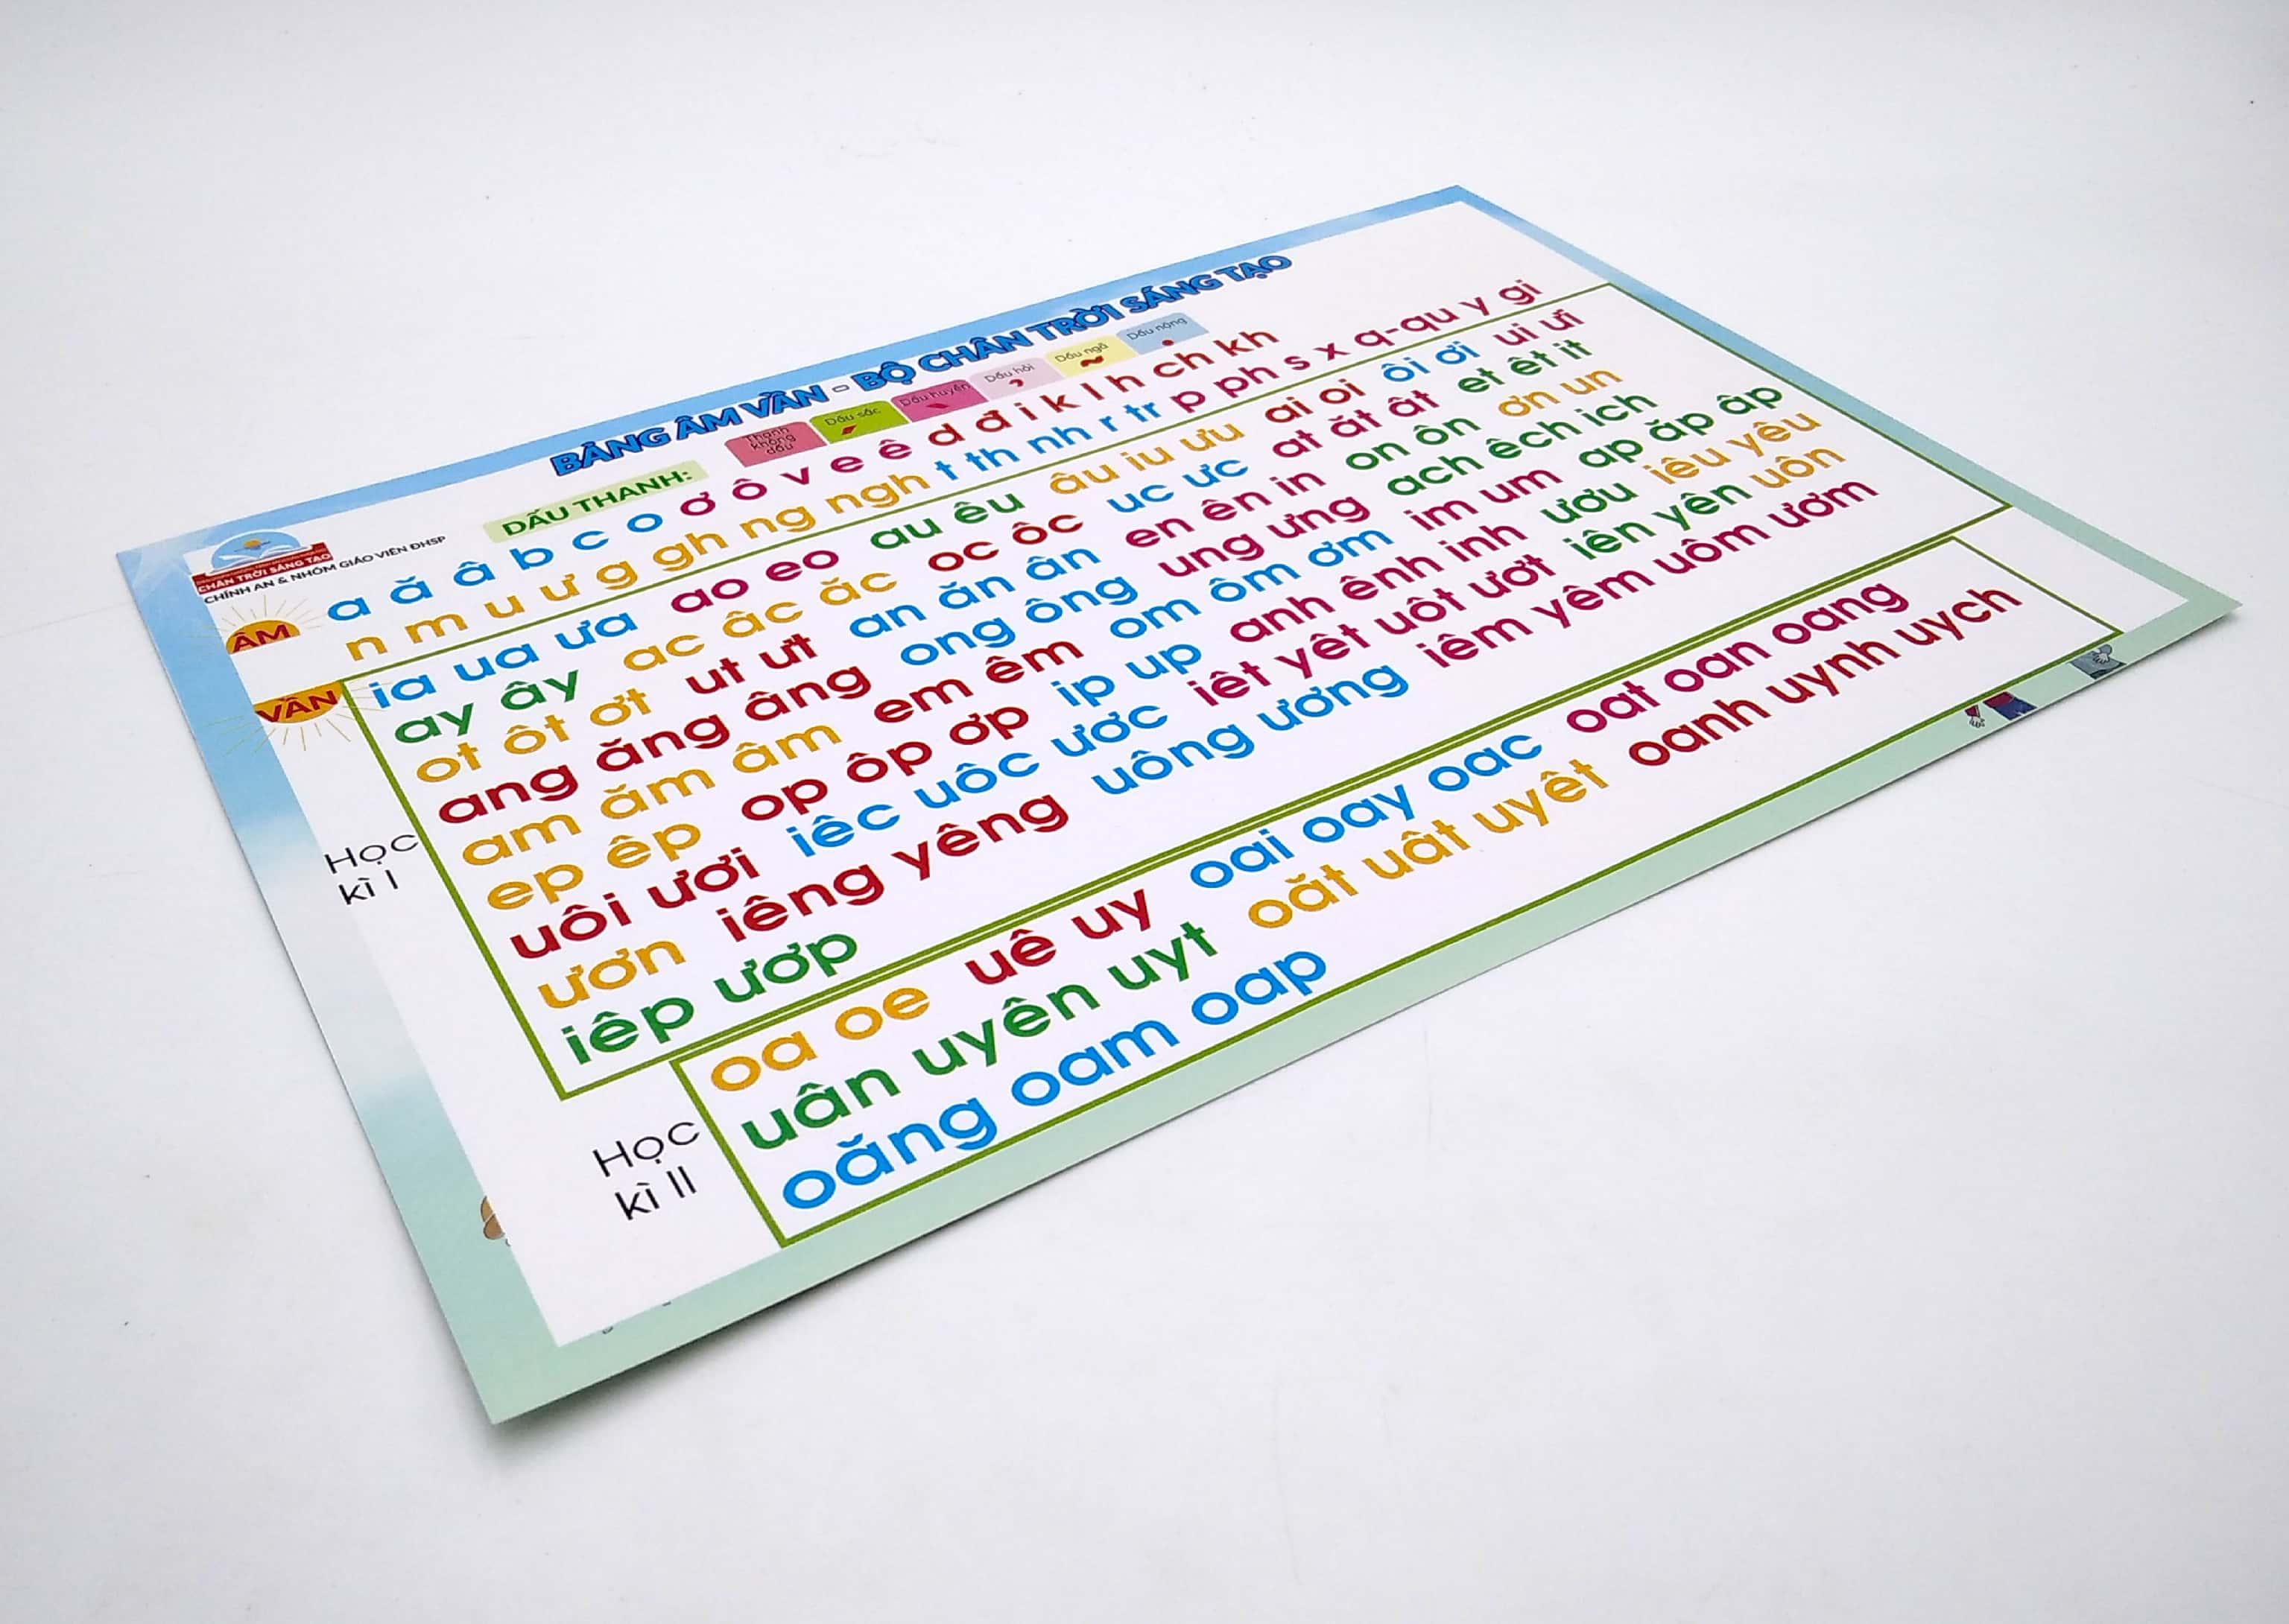 BẢNG ÂM VẦN - BỘ CHÂN TRỜI SÁNG TẠO
CHÂN TRỜI SÁNG TẠO
CHÍNH AN & NHÓM GIÁO VIÊN ĐHSP
DẤU THANH:
Thanh không dấu
Dấu sắc
Dấu huyền
Dấu hỏi
Dấu ngã
Dấu nặng
ÂM
a ă â b c o ơ ô v e ê d đ i k l h ch kh
n m u ư g gh ng ngh t th nh r tr p ph s x q-qu y gi
VẦN
Học kì I
ia ua ưa ao eo au êu âu iu ưu ai oi ôi ơi ui ưi
ay ây ac âc ăc oc ôc uc ưc at ăt ât et êt it
ot ôt ơt ut ưt an ăn ân en ên in on ôn ơn un
ang ăng âng ong ông ung ưng ach êch ich
am ăm âm em êm om ôm ơm im um ap ăp âp
ep êp op ôp ơp ip up anh ênh inh ươu iêu yêu
uôi ươi iêc uôc ươc iêt yêt uôt ươt iên yên uôn
ươn iêng yêng uông ương iêm yêm uôm ươm
iêp ươp
Học kì II
oa oe uê uy oai oay oac oat oan oang
uân uyên uyt oăt uât uyêt oanh uynh uych
oăng oam oap